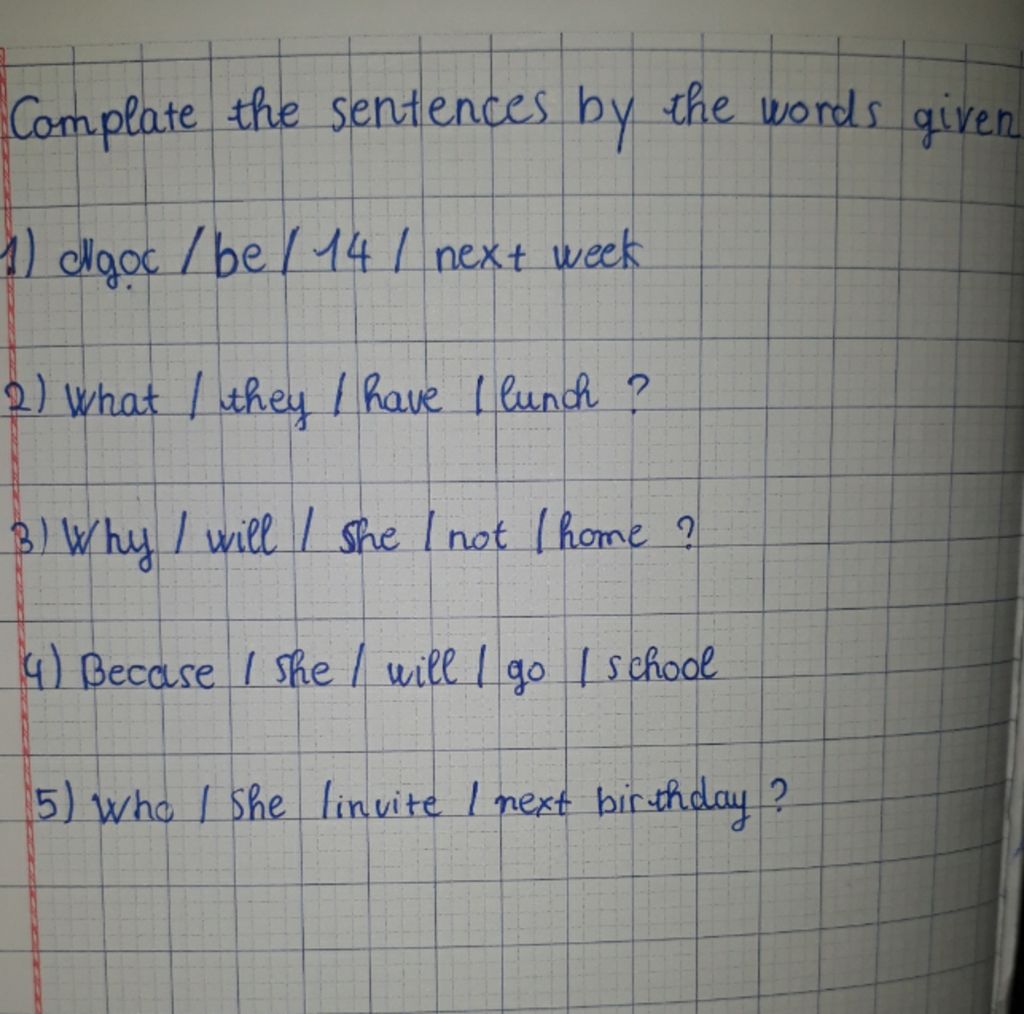 Complate the sentences by the words given
1) Ngọc / be / 14 / next week
2) What / they / have / lunch ?
3) Why / will / she / not / home ?
4) Becase / she / will / go / school
5) Who / she / invite / next birthday ?